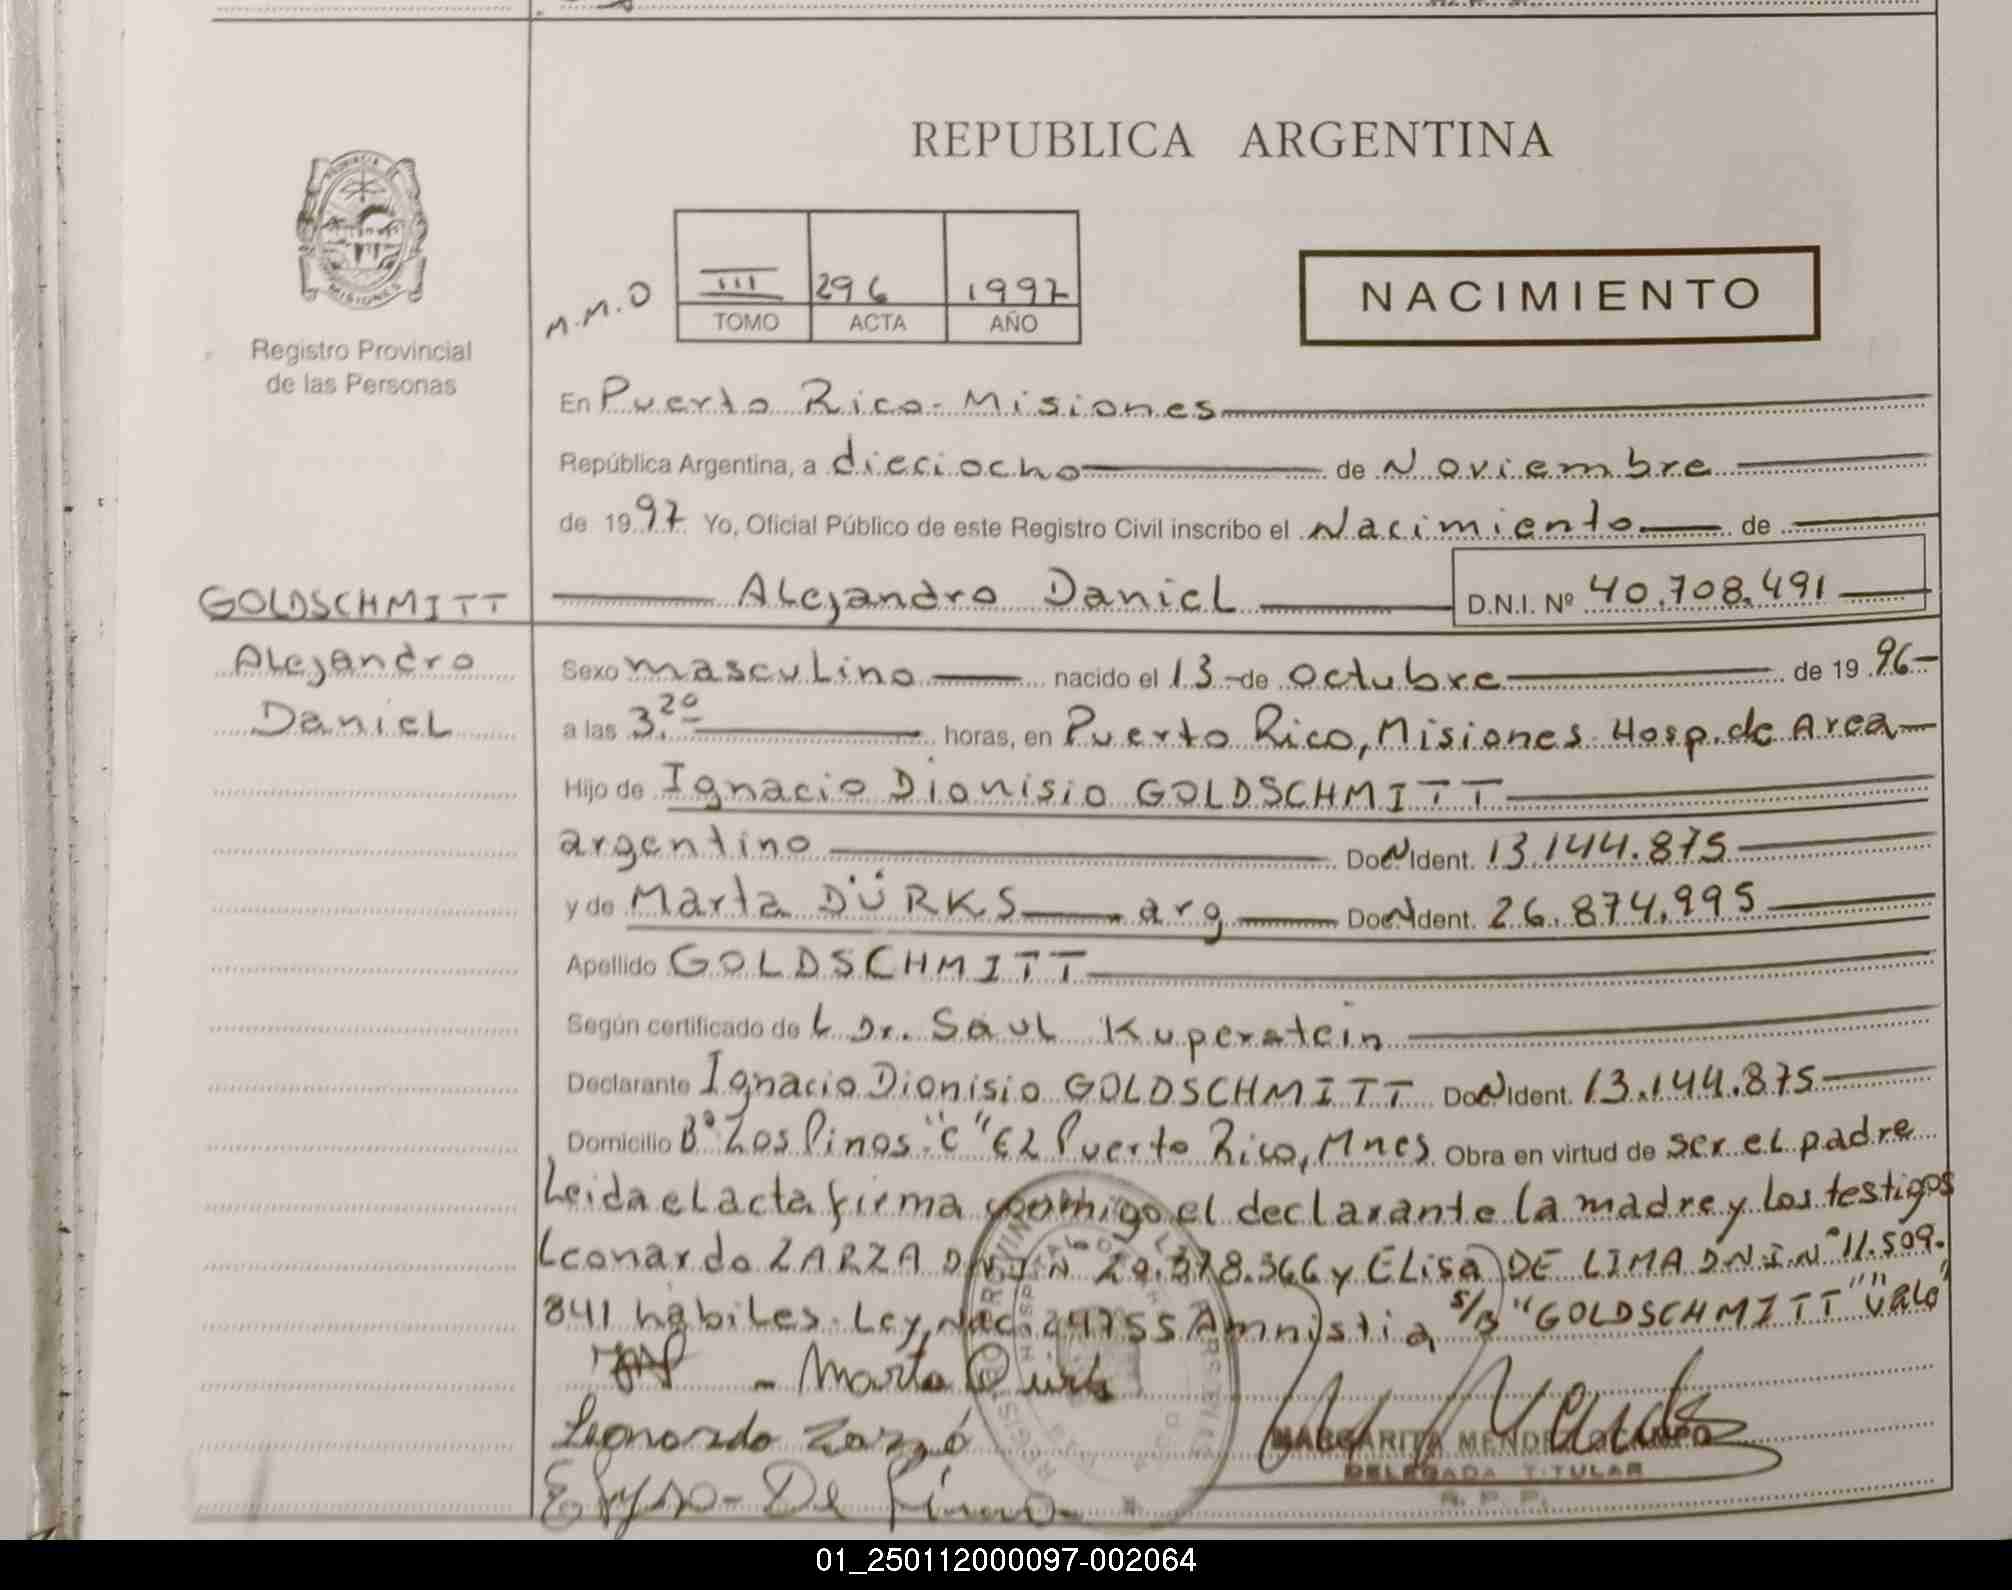 REPUBLICA ARGENTINA
PROVINCIA
MISIONES
Registro Provincial
de las Personas
M.M.O
III 296 1997
TOMO ACTA AÑO
NACIMIENTO
En Puerto Rico - Misiones
República Argentina, a dieciocho de Noviembre
de 1997 Yo, Oficial Público de este Registro Civil inscribo el Nacimiento de
GOLDSCHMITT
Alejandro
Daniel
Alejandro Daniel D.N.I. Nº 40.708.491
Sexo masculino nacido el 13 - de Octubre de 1996-
a las 3.20 horas, en Puerto Rico, Misiones Hosp. de Area
Hijo de Ignacio Dionisio GOLDSCHMITT
argentino Doc N Ident. 13.144.875
y de Marta DÜRKS arg Doc N Ident. 26.874.995
Apellido GOLDSCHMITT
Según certificado de L Dr. Saul Kuperstein
Declarante Ignacio Dionisio GOLDSCHMITT Doc N Ident. 13.144.875
Domicilio Bº Los Pinos "C" 62 Puerto Rico, Mnes Obra en virtud de ser el padre
Leida el acta firma conmigo el declarante la madre y los testigos
Leonardo ZARZA DNI N° 29.378.366 y Elisa DE LIMA D N I N° 11.509.
841 hábiles. Ley, Nac. 24755 Amnistia s/b "GOLDSCHMITT" "VALE"
- Marta Durks
Leonardo Zarza
MARGARITA MENDEZ OCAMPO
DELEGADA TITULAR
R. P. P.
De Lima
01_250112000097-002064